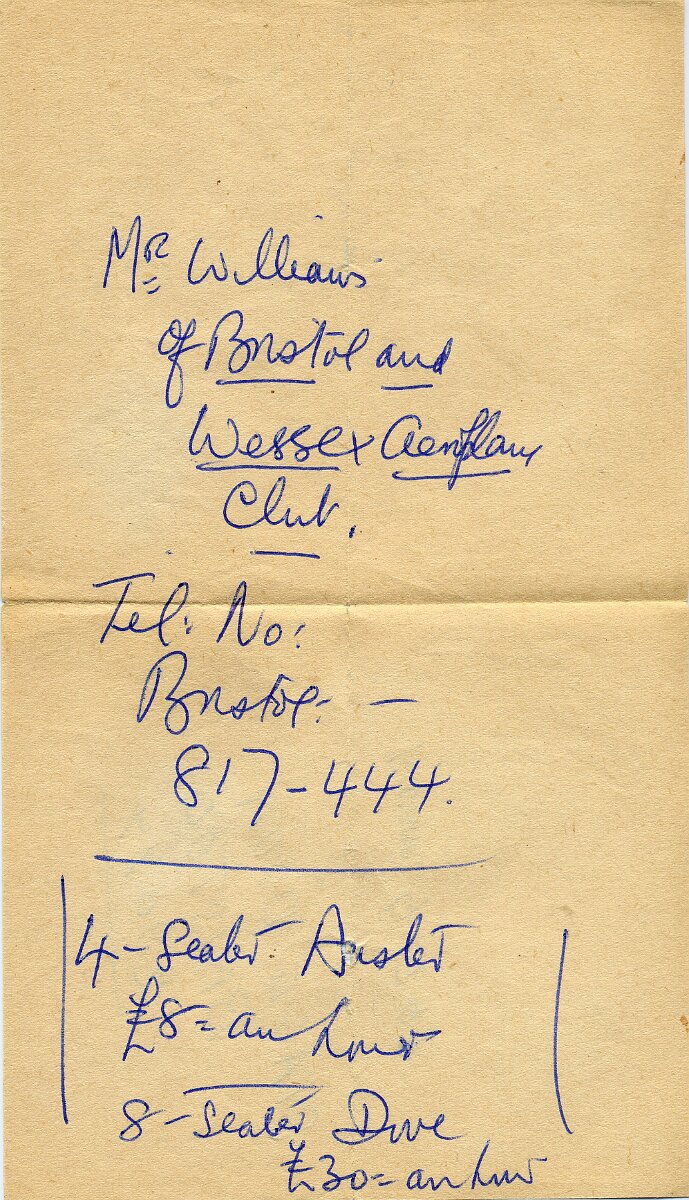 Mr Williams
of Bristol and
Wessex Aeroplane
Club.
Tel: No:
Bristol: —
817-444.
4-Seater Auster
£8= an hour
8-Seater Dove
£30= an hour